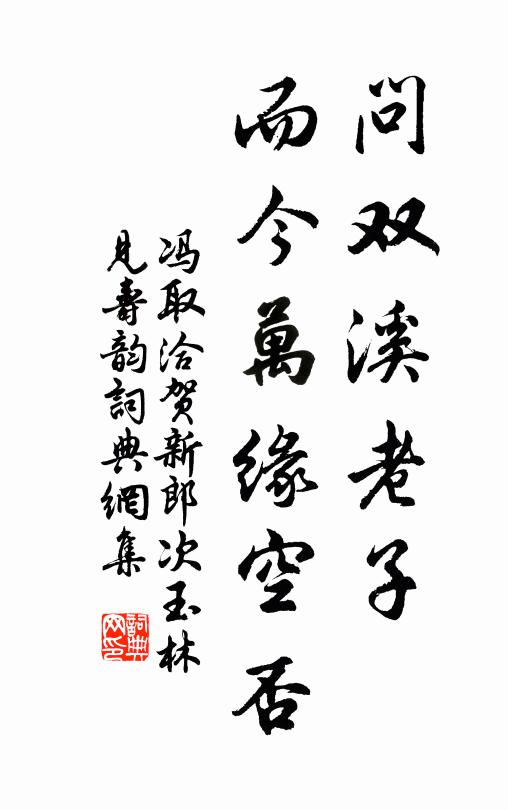 问双溪老子
而今萬缘空否
冯取洽贺新郎次玉林
见壽韵詞典網集
詞典网印